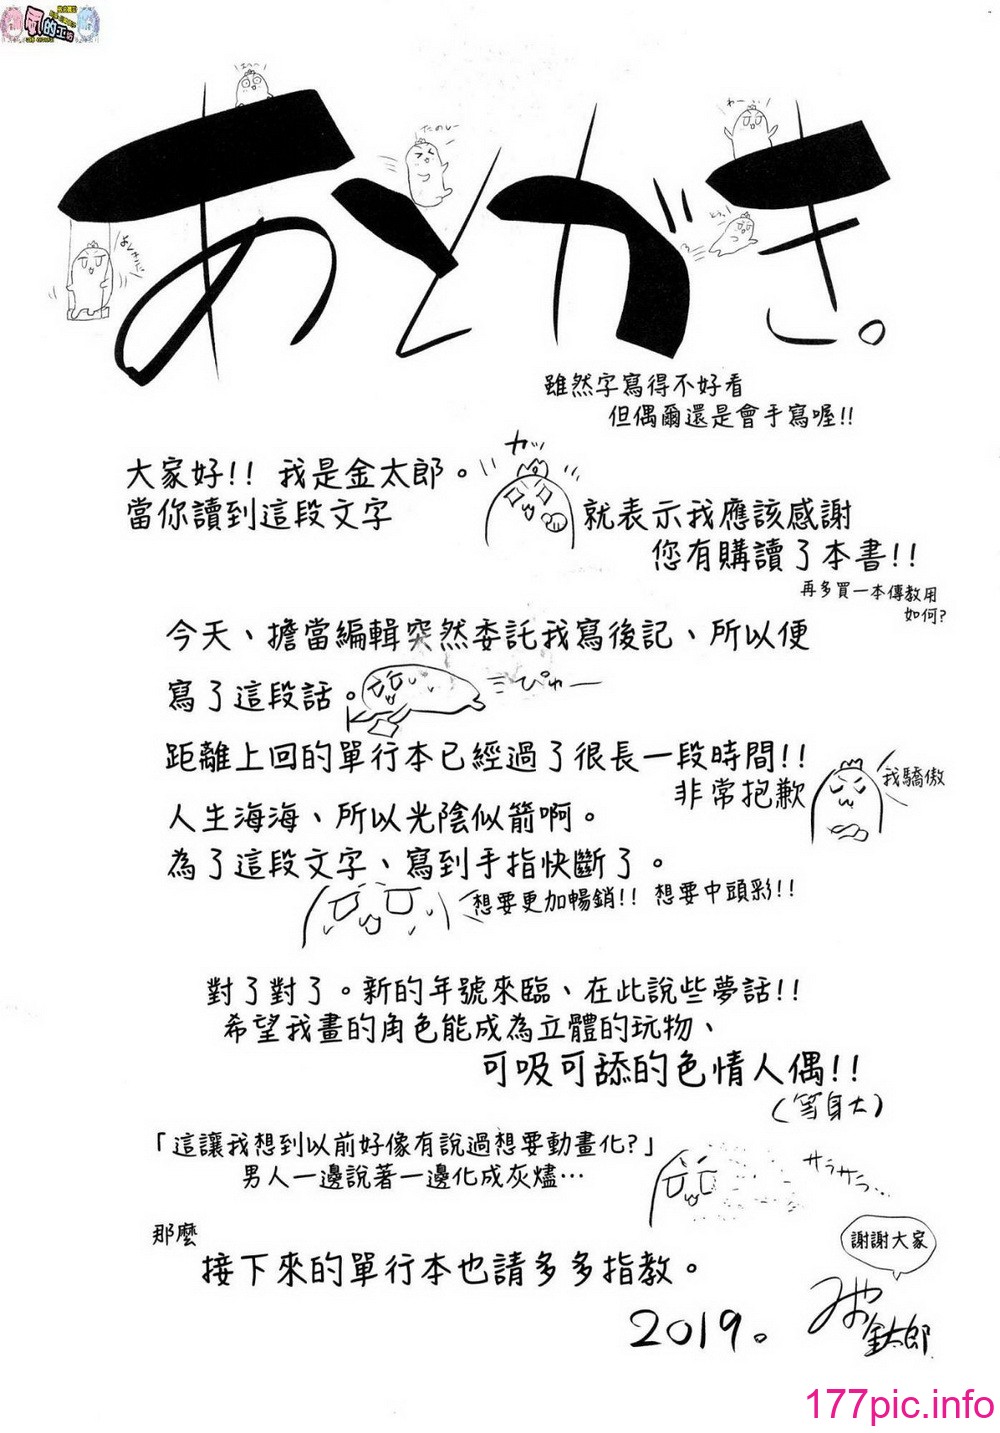 風的工房
えへへ
たのしー
わーふぅ
あとがき。
雖然字寫得不好看
但偶爾還是會手寫喔!!
カッ
大家好!! 我是金太郎。
當你讀到這段文字
就表示我應該感謝
您有購讀了本書!!
再多買一本傳教用
如何?
今天、擔當編輯突然委託我寫後記、所以便
寫了這段話。
ぴゅー
距離上回的單行本已經過了很長一段時間!!
非常抱歉
我驕傲
人生海海、所以光陰似箭啊。
為了這段文字、寫到手指快斷了。
想要更加暢銷!! 想要中頭彩!!
對了對了。新的年號來臨、在此說些夢話!!
希望我畫的角色能成為立體的玩物、
可吸可舔的色情人偶!!
(等身大)
「這讓我想到以前好像有說過想要動畫化?」
男人一邊說著一邊化成灰燼…
サラサラ…
那麼
接下來的單行本也請多多指教。
謝謝大家
2019。
金太郎
177pic.info